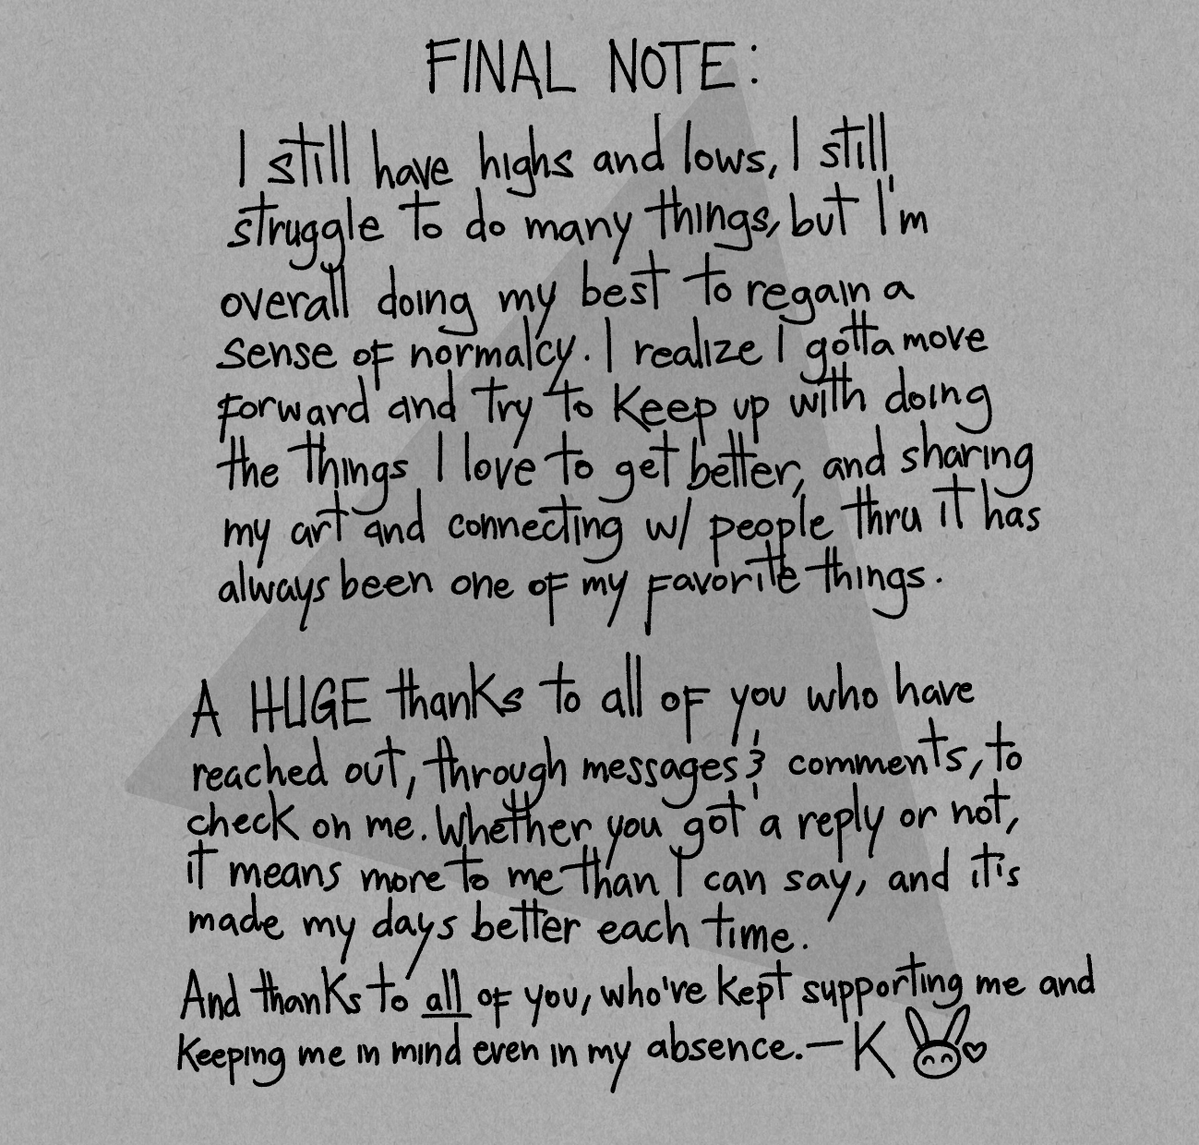 FINAL NOTE:
I still have highs and lows, I still
struggle to do many things, but I'm
overall doing my best to regain a
sense of normalcy. I realize I gotta move
forward and try to keep up with doing
the things I love to get better, and sharing
my art and connecting w/ people thru it has
always been one of my favorite things.
A HUGE thanks to all of you who have
reached out, through messages & comments, to
check on me. Whether you got a reply or not,
it means more to me than I can say, and it's
made my days better each time.
And thanks to all of you, who've kept supporting me and
keeping me in mind even in my absence.—K